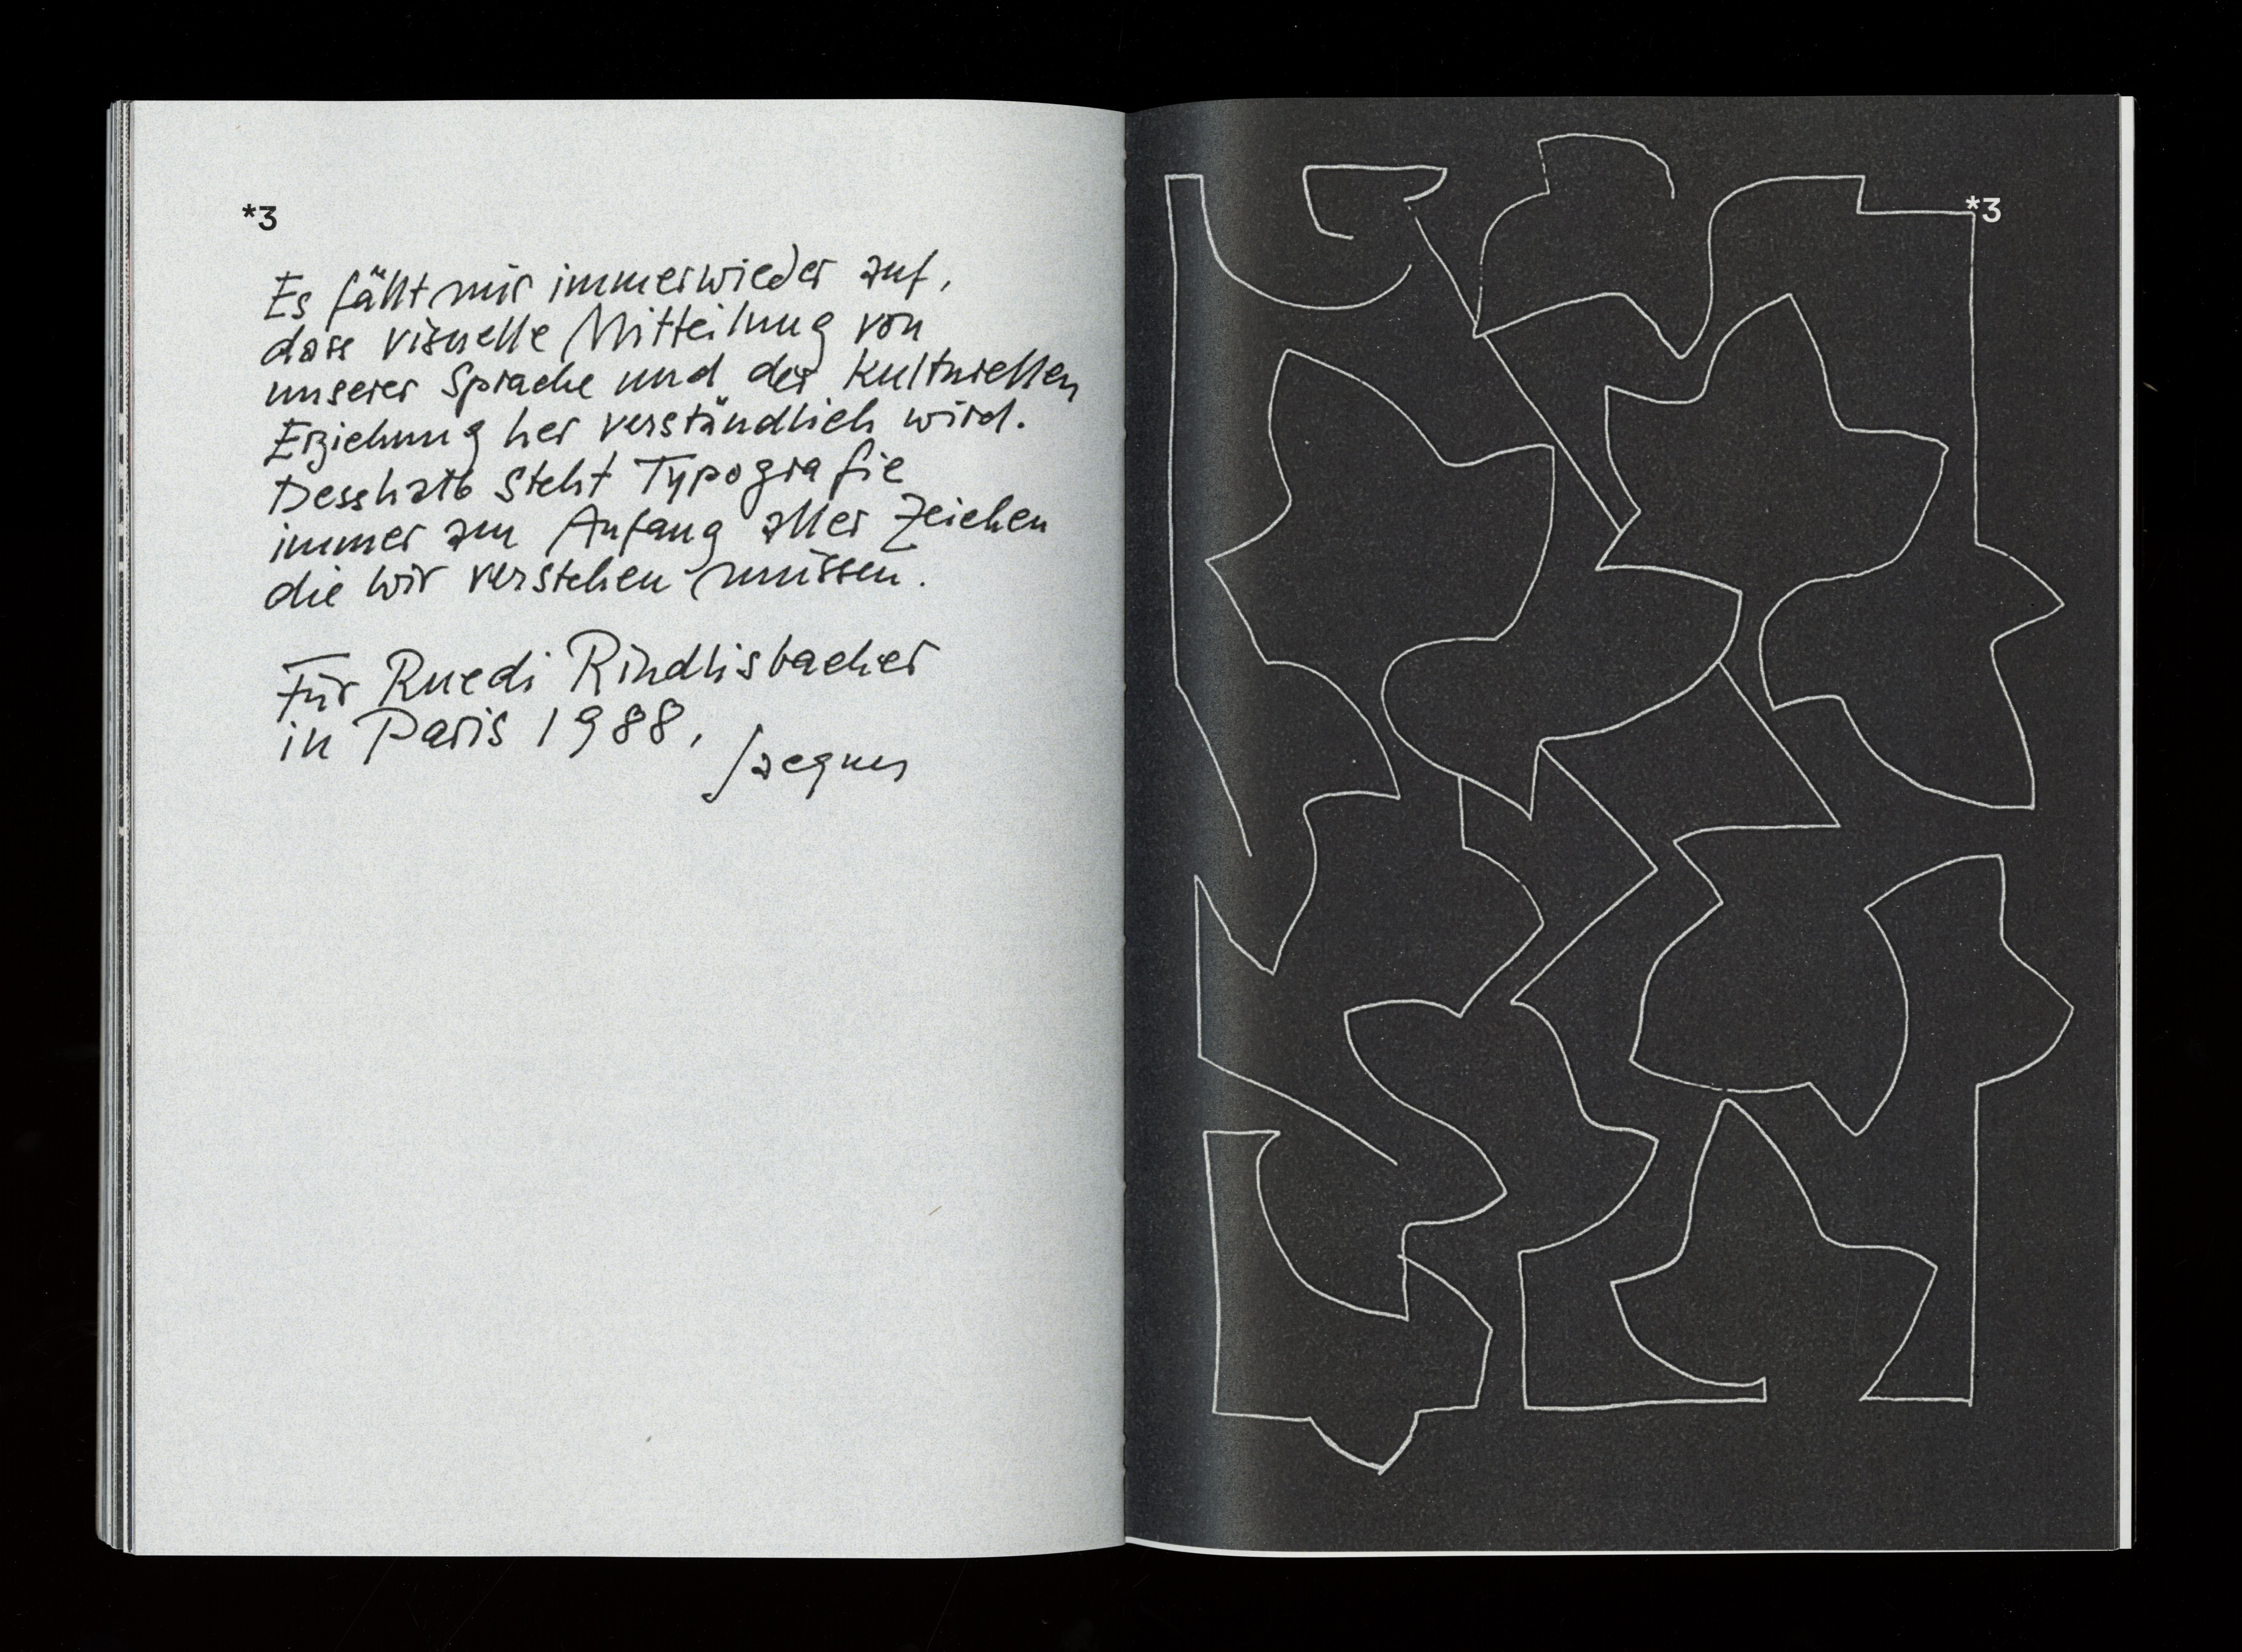 *3
Es fällt mir immerwieder auf,
dass visuelle Mitteilung von
unserer Sprache und der kulturellen
Erziehung her verständlich wird.
Desshalb steht Typografie
immer am Anfang aller Zeichen
die wir verstehen müssen.
Für Ruedi Rindlisbacher
in Paris 1988,
Jacques
*3